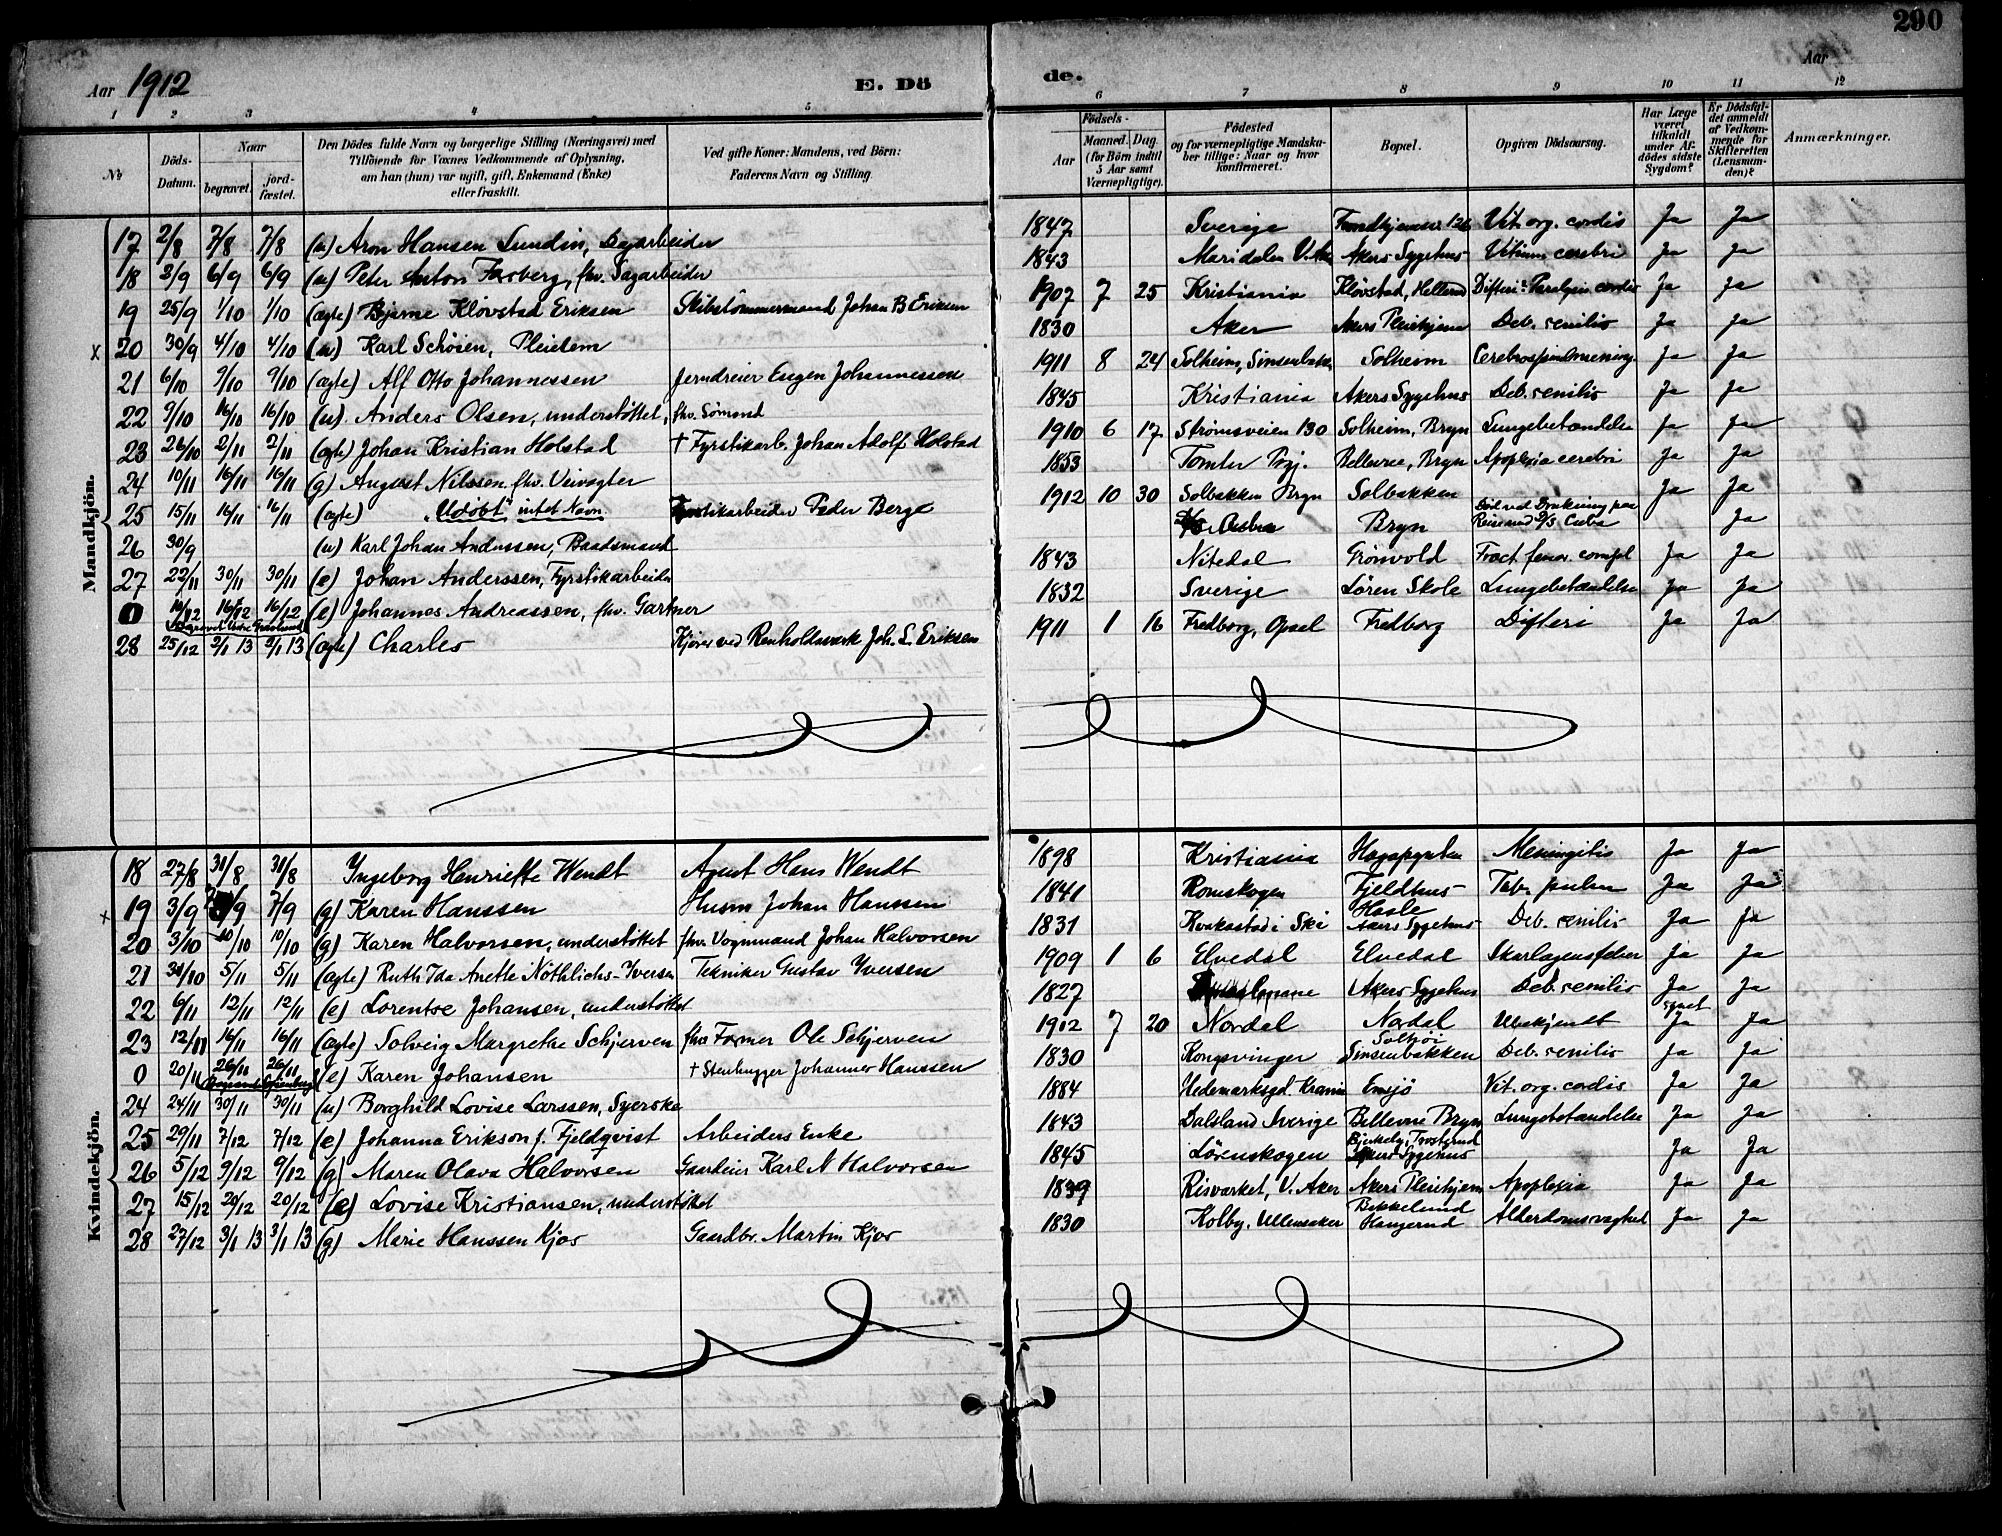 290
Aar 1912 E. Dö de. Aar
1 2 3 4 5 6 7 8 9 10 11 12
№ Döds-Datum. Naar begravet. jordfæstet. Den Dödes fulde Navn og borgerlige Stilling (Næringsvei) med Tilföiende for Voxnes Vedkommende af Oplysning, om han (hun) var ugift, gift, Enkemand (Enke) eller fraskilt. Ved gifte Koner: Mandens, ved Börn: Faderens Navn og Stilling. Födsels- Aar Maaned. Dag. (for Börn indtil 5 Aar samt Værnepligtige). Födested og for værnepligtige Mandskaber tillige: Naar og hvor konfirmeret. Bopæl. Opgiven Dödsaarsag. Har Læge været tilkaldt under Afdödes sidste Sygdom? Er Dödsfaldet anmeldt af Vedkommende for Skifteretten (Lensmanden)? Anmærkninger.
Mandkjön.
17 2/8 7/8 7/8 (u) Aron Hansen Lundin, Dagarbeider 1847 Sverige Vit. org. cordis Ja Ja
18 2/9 6/9 6/9 (u) Peter Anton Fasberg, fhv. Sagarbeider 1843 Maridalen V. Aker Akers Sygehus Vitium cerebri Ja Ja
19 25/9 1/10 1/10 (ægte) Bjarne Kløvstad Eriksen Skibstømmermand Johan B Eriksen 1907 7 25 Kristiania Kløvstad, Hellerud Difteri. Paralysis cordis Ja Ja
x 20 30/9 4/10 4/10 (u) Karl Schøien, Pleielem 1830 Aker Akers Pleiehjem Deb. senilis Ja Ja
21 6/10 9/10 9/10 (ægte) Alf Otto Johannessen Jerndreier Eugen Johannessen 1911 8 24 Solheim, Sinsenbakken Solheim Cerebrospinalmening. Ja Ja
22 9/10 16/10 16/10 (u). Anders Olsen, understøttet, fhv. Sømand 1845 Kristiania Akers Sygehus Deb. senilis Ja Ja
23 26/10 2/11 2/11 (ægte) Johan Kristian Holstad † Fyrstikarb. Johan Adolf Holstad 1910 6 17 Strømsveien 130 Solheim, Bryn Lungebetændelse Ja Ja
24 10/11 16/11 16/11 (g) August Nilssen fhv. Veivogter 1853 Tomter Prgj. Bellevue, Bryn Apoplexia cerebri Ja Ja
25 15/11 16/11 16/11 (ægte) "Udøbt" intet Navn Fyrstikarbeider Peder Berge 1912 10 30 Solbakken Bryn Solbakken Ja Ja
26 30/9 (u) Karl Johan Anderssen, Baadsmand Bryn Død ved Drukning paa Reise med D/S Cuba Ja
27 22/11 30/11 30/11 (e) Johan Anderssen, Fyrstikarbeider 1843 Nitedal Grønvold Fract. femor. compl Ja Ja
0 10/12 16/12 16/12 (e) Johannes Andreassen, fhv. Gartner 1832 Sverige Løren Skole Lungebetændelse Ja Ja
28 25/12 2/1 13 2/1 13 (ægte) Charles Kjører ved Renholdsverk Joh. L. Eriksen 1911 1 16 Fredborg, Opsal Fredborg Difteri Ja Ja
Kvindekjön.
18 27/8 31/8 31/8 Ingeborg Henriette Wendt Agent Hans Wendt 1898 Kristiania Hagapynten Meningitis Ja Ja
x 19 3/9 7/9 7/9 (g) Karen Hanssen Husm Johan Hanssen 1841 Romskogen Fjeldhus Hasle Tub. pulm Ja Ja
20 3/10 10/10 10/10 (g) Karen Halvorsen, understøttet fhv. Vognmand Johan Halvorsen 1831 Kvakestad i Ski Akers Sygehus Deb. senilis Ja Ja
21 31/10 5/11 5/11 (ægte) Ruth Ida Anette Nöthlichs-Iversen Tekniker Gustav Iversen 1909 1 6 Elvedal Elvedal Skarlagensfeber Ja Ja
22 6/11 12/11 12/11 (e) Lorentse Johansen, understøttet 1827 Akers Sygehus Deb. senilis Ja Ja
23 12/11 16/11 16/11 (ægte) Solveig Margrethe Schjerven fhv Former Ole Schjerven 1912 7 20 Nordal Nordal Ubekjendt synet Ja Ja
0 20/11 26/11 26/11 (e) Karen Johansen † Stenhugger Johannes Hanssen 1830 Kongsvinger Solhøi Sinsenbakken Deb. senilis Ja Ja
24 24/11 30/11 30/11 (u) Borghild Lovise Larssen, Syerske 1884 Hedemarksgd. Krania Ensjö Vit. org. cordis Ja Ja
25 29/11 7/12 7/12 (e) Johanna Erikson f. Fjeldqvist Arbeiders Enke 1843 Dalsland Sverige Bellevue Bryn Lungebetændelse Ja Ja
26 5/12 9/12 9/12 (g) Maren Olava Halvorsen Gaardeier Karl N Halvorsen 1845 Lørenskogen Akers Sygehus Ja Ja
27 15/12 20/12 20/12 (e) Lovise Kristiansen, understøttet 1839 Risværket, V. Aker Akers Pleiehjem Apoplexia Ja Ja
28 27/12 3/1 13 3/1 13 (g) Marie Hanssen Kjos Gaardbr. Martin Kjos 1830 Kolby, Ullensaker Bekkelund Haugerud Alderdomssvaghed Ja Ja